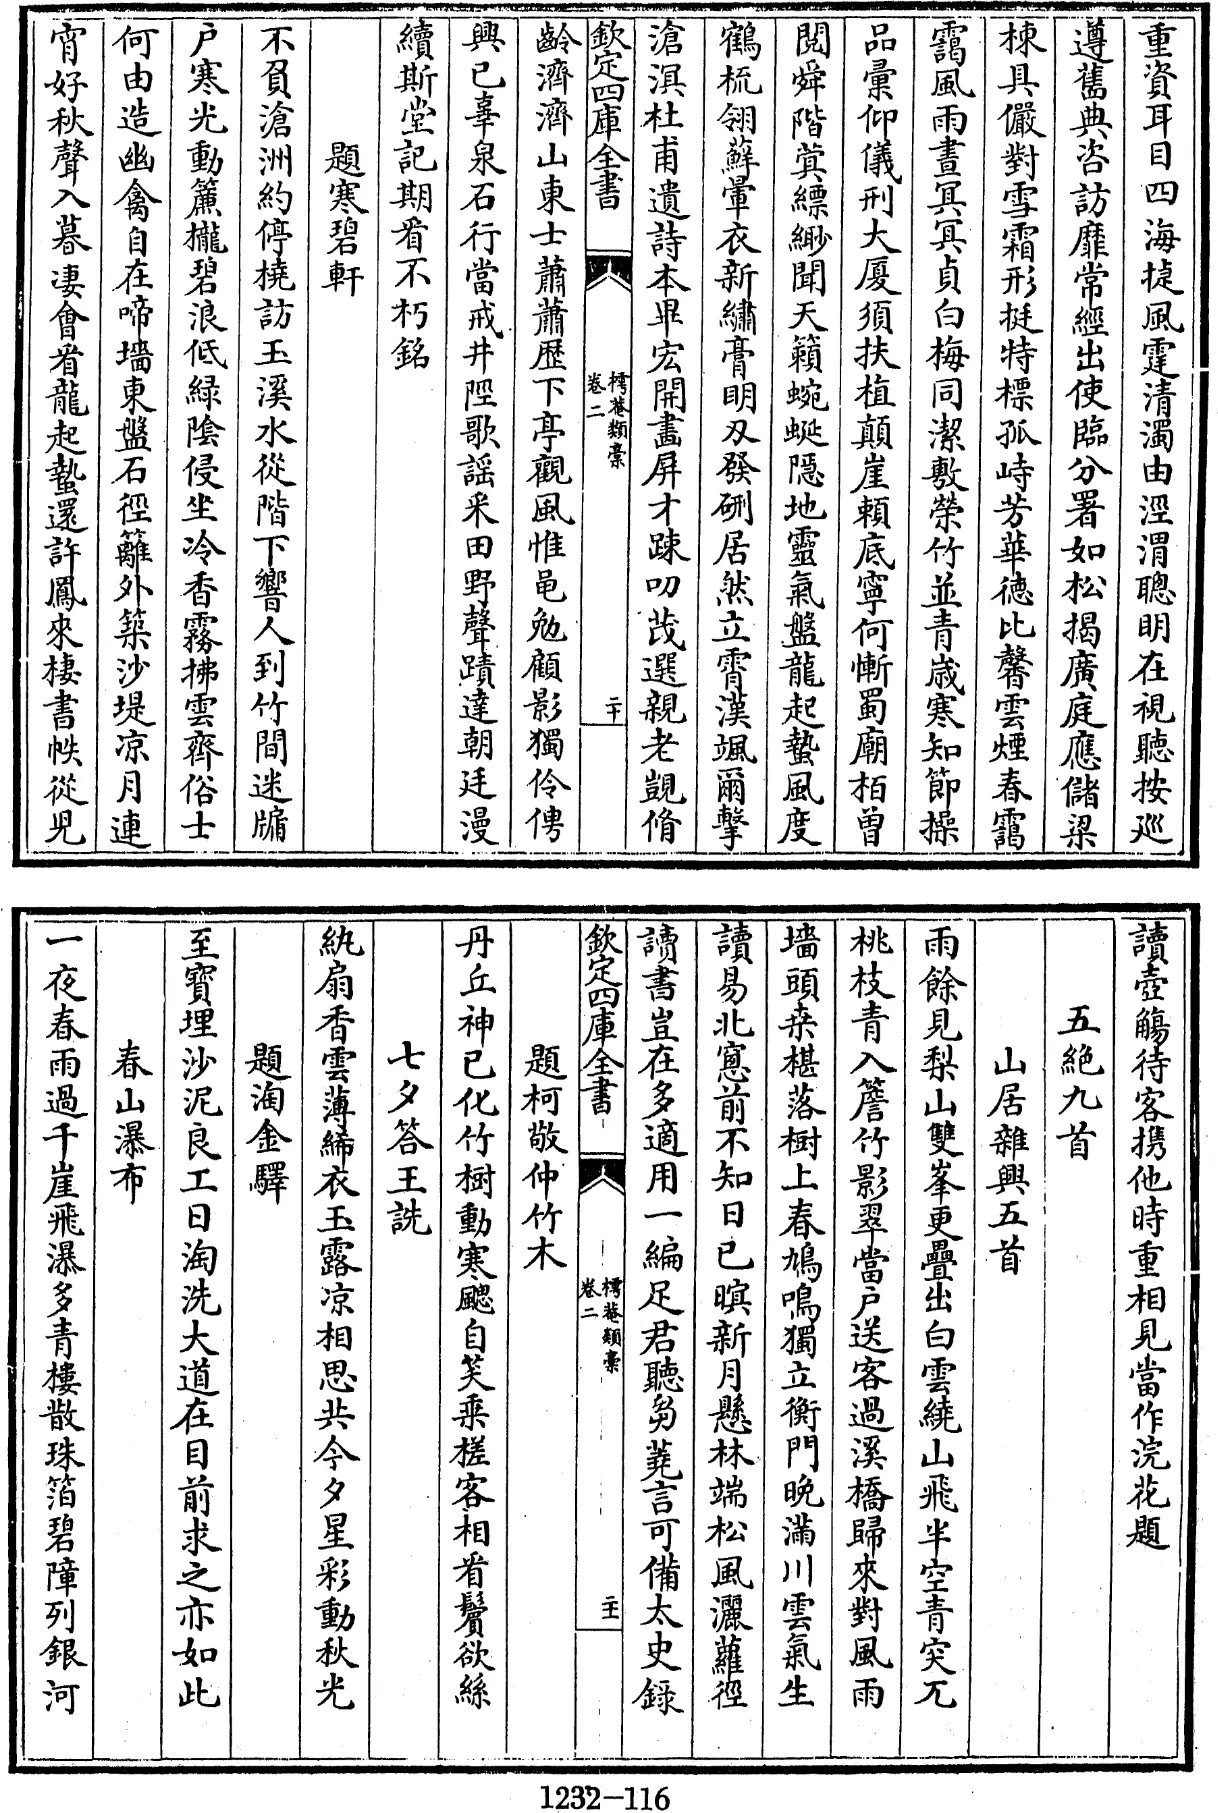 重資耳目四海捷風霆清濁由涇渭聰明在視聽按廵
遵舊典咨訪靡常經出使臨分署如松揭廣庭應儲梁
棟具儼對雪霜形挺特標孤峙芳華徳比馨雲煙春靄
靄風雨晝冥冥貞白梅同潔敷榮竹並青歳寒知節操
品彚仰儀刑大厦須扶植顛崖頼底寧何慚蜀廟栢曽
閲舜階蓂縹緲聞天籟蜿蜒隠地靈氣盤龍起蟄風度
鶴梳翎蘚暈衣新繡膏明刄發硎居然立霄漢颯爾擊
滄溟杜甫遺詩本畢宏開畫屏才踈叨茂選親老覬脩
欽定四庫全書
樗菴類稾
卷二
二十
齡濟濟山東士蕭蕭歴下亭觀風惟黽勉顧影獨伶俜
興已辜泉石行當戒井陘歌謡采田野聲蹟達朝廷漫
續斯堂記期㸔不朽銘
題寒碧軒
不負滄洲約停橈訪玉溪水從階下響人到竹間迷牖
户寒光動簾櫳碧浪低緑隂侵坐冷香霧拂雲齊俗士
何由造幽禽自在啼墻東盤石徑籬外築沙堤凉月連
宵好秋聲入暮凄會㸔龍起蟄還許鳳來棲書帙從兒
讀壺觴待客攜他時重相見當作浣花題
五絶九首
山居雜興五首
雨餘見梨山雙峯更疊出白雲繞山飛半空青突兀
桃枝青入簷竹影翠當户送客過溪橋歸來對風雨
墻頭桒椹落樹上春鳩鳴獨立衡門晚滿川雲氣生
讀易北窻前不知日已暝新月懸林端松風灑蘿徑
讀書豈在多適用一編足君聽芻蕘言可備太史録
欽定四庫全書
樗菴類稾
卷二
二十一
題柯敬仲竹木
丹丘神已化竹樹動寒颸自笑乗槎客相㸔鬢欲絲
七夕答王詵
紈扇香雲薄絺衣玉露凉相思共今夕星彩動秋光
題淘金驛
至寳埋沙泥良工日淘洗大道在目前求之亦如此
春山瀑布
一夜春雨過千崖飛瀑多青樓散珠箔碧障列銀河
1232-116